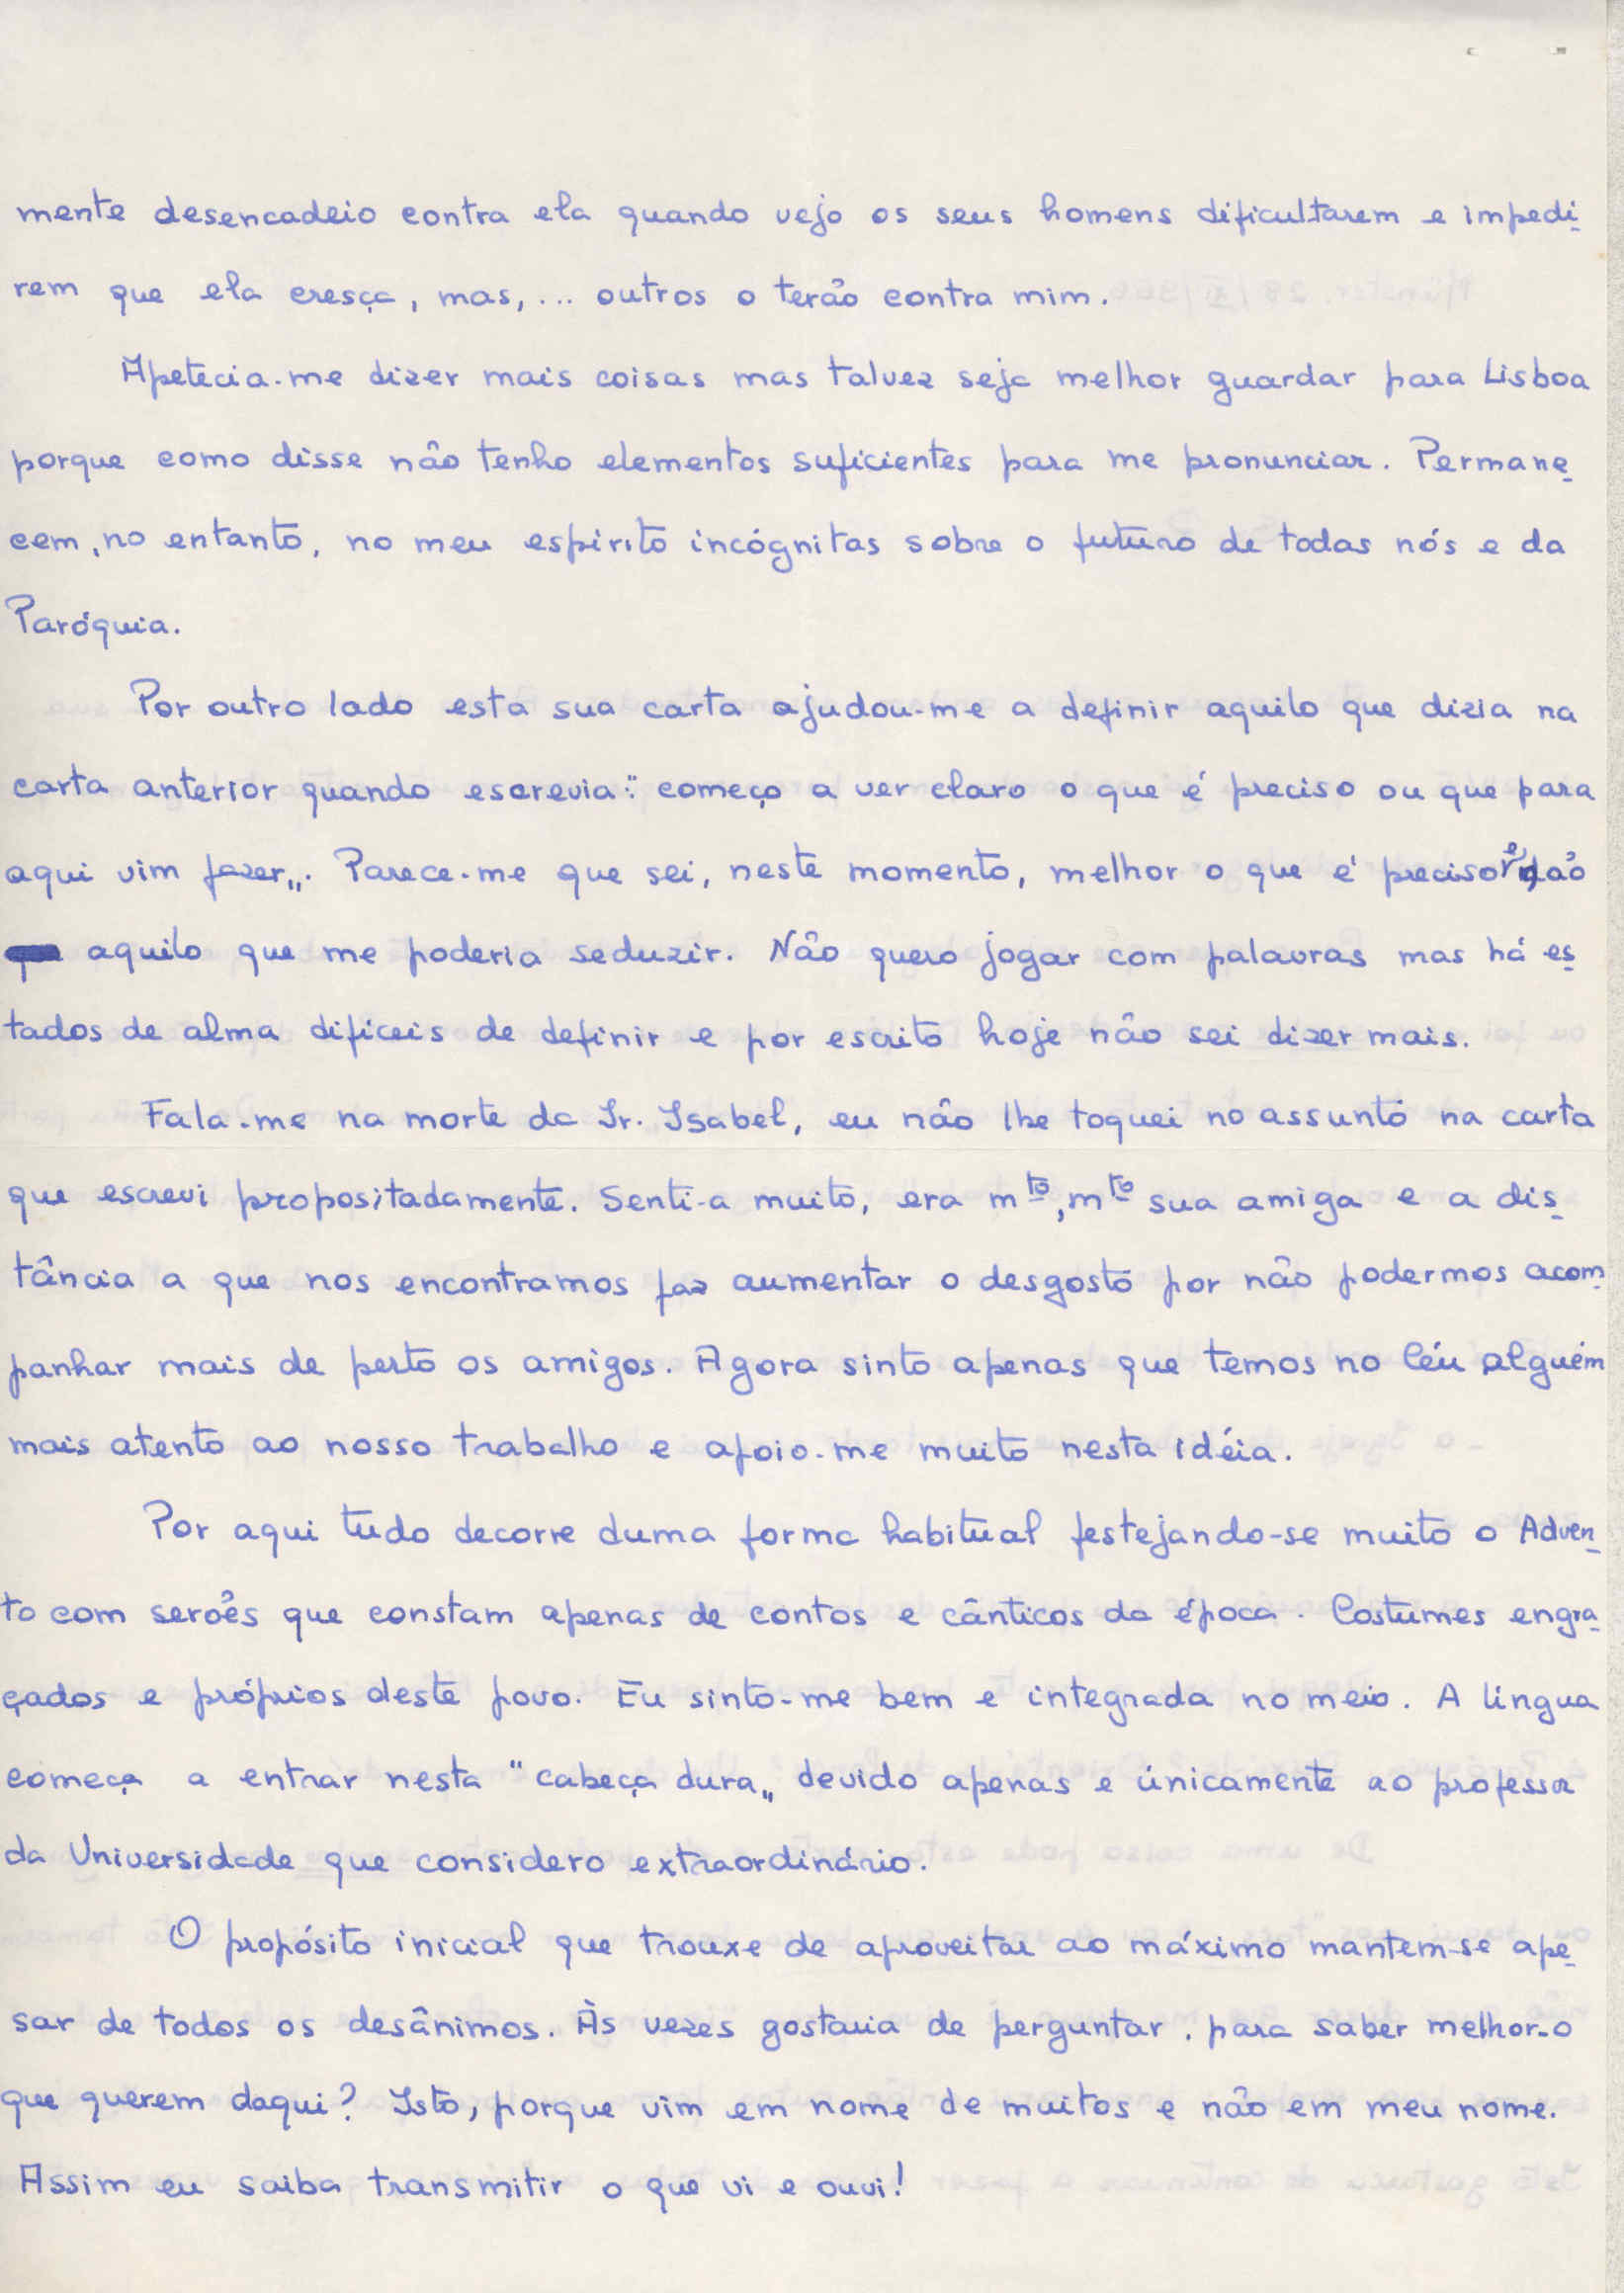 mente desencadeio contra ela quando vejo os seus homens dificultarem e impedi-
rem que ela cresça, mas,... outros o terão contra mim.
Apetecia-me dizer mais coisas mas talvez seja melhor guardar para Lisboa
porque como disse não tenho elementos suficientes para me pronunciar. Permane-
cem, no entanto, no meu espírito incógnitas sobre o futuro de todas nós e da
Paróquia.
Por outro lado esta sua carta ajudou-me a definir aquilo que dizia na
carta anterior quando escrevia: "começo a ver claro o que é preciso ou que para
aqui vim fazer". Parece-me que sei, neste momento, melhor o que é preciso e não
aquilo que me poderia seduzir. Não quero jogar com palavras mas há es-
tados de alma difíceis de definir e por escrito hoje não sei dizer mais.
Fala-me na morte da Ir. Isabel, eu não lhe toquei no assunto na carta
que escrevi propositadamente. Senti-a muito, era mto, mto sua amiga e a dis-
tância a que nos encontramos faz aumentar o desgosto por não podermos acom-
panhar mais de perto os amigos. Agora sinto apenas que temos no Céu alguém
mais atento ao nosso trabalho e apoio-me muito nesta idéia.
Por aqui tudo decorre duma forma habitual festejando-se muito o Adven-
to com serões que constam apenas de contos e cânticos da época. Costumes engra-
çados e próprios deste povo. Eu sinto-me bem e integrada no meio. A língua
começa a entrar nesta "cabeça dura" devido apenas e únicamente ao professor
da Universidade que considero extraordinário.
O propósito inicial que trouxe de aproveitar ao máximo mantem-se ape-
sar de todos os desânimos. Às vezes gostaria de perguntar, para saber melhor-o
que querem daqui? Isto, porque vim em nome de muitos e não em meu nome.
Assim eu saiba transmitir o que vi e ouvi!